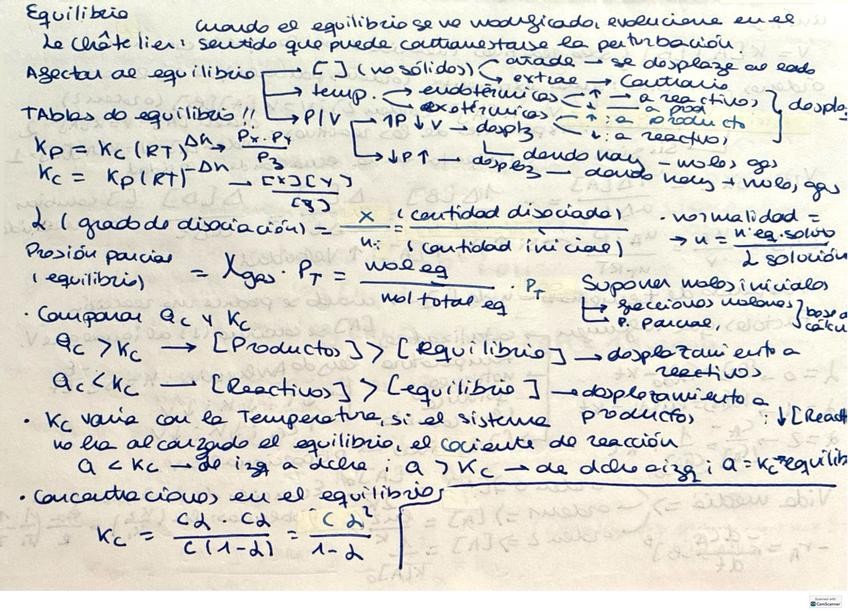 Equilibrio
cuando el equilibrio se ve modificado, evoluciona en el
Le Châtelier: sentido que puede contrarrestarse la perturbación.
Afectan al equilibrio → [ ] (no sólidos) añade → se desplaza al lado
extrae → contrario
→ temp. → endotérmicas ↑ → a reactivos
→ exotérmicas ↑: a producto } despla
↓: a reactivos
TAblas de equilibrio!! → P/V → ↑P ↓V → desplz
↳ donde hay - moles gas
→ ↓P ↑ → desplz → donde hay + moles gas
KP = KC (RT)^Δn → Px · Py / Pz
KC = KP (RT)^-Δn → [X][Y] / [Z]
α (grado de disociación) = x / ni = (cantidad disociada) / (cantidad inicial)
· normalidad =
→ n = n·eq·soluto / L solución
Presión parcial (equilibrio) = Xgas · PT = mol eq / mol total eq · PT
Suponer moles iniciales
↳ fracciones molares
↳ P. Parcial } base de cálcu
· Comparar QC y KC
QC > KC → [Productos] > [equilibrio] → desplazamiento a
reactivos
QC < KC → [Reactivos] > [equilibrio] → desplazamiento a
productos : ↓[React
· KC varía con la Temperatura, si el sistema
no ha alcanzado el equilibrio, el cociente de reacción
Q < KC → de izq a dcha ; Q > KC → de dcha a izq ; Q = KC → equilib
· Concentraciones en el equilibrio
KC = Cα · Cα / C(1-α) = Cα² / 1-α
Scanned with
CamScanner